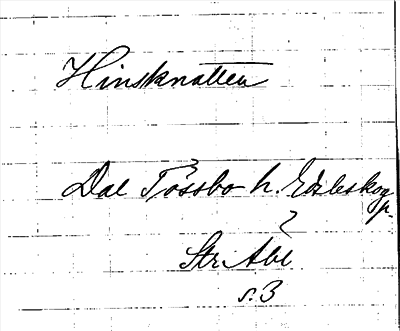 Hinsknatten
Dal Tössbo h. Edsleskog
p.
Str. Åbl
s. 3